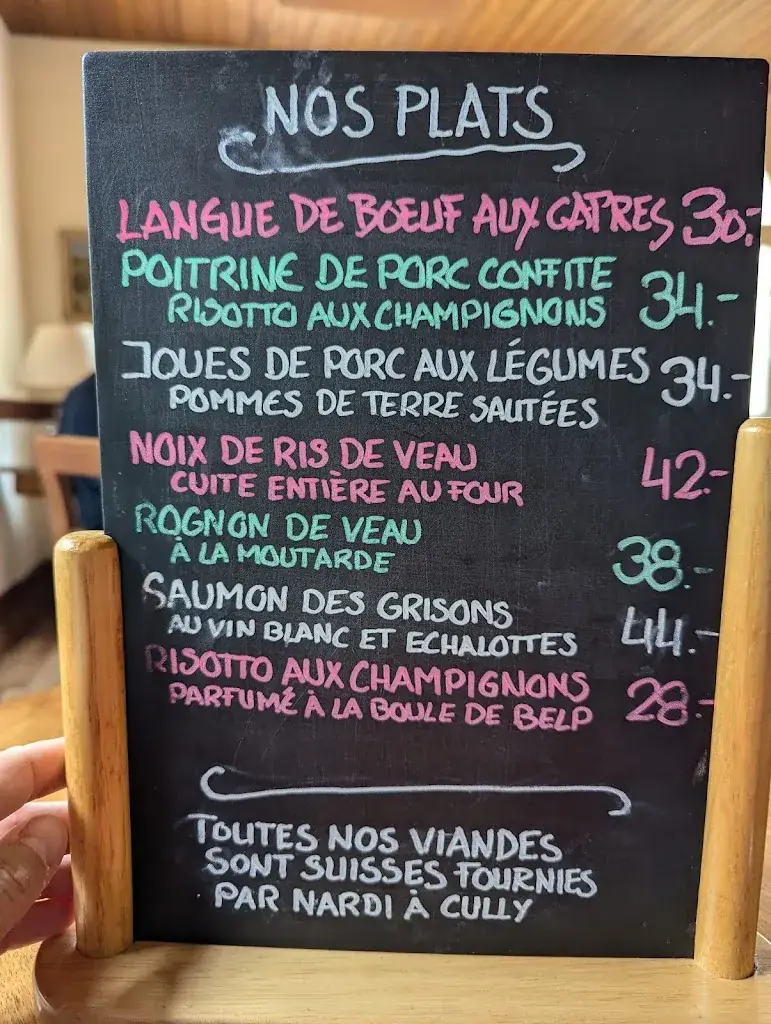 NOS PLATS
LANGUE DE BOEUF AUX CAPRES 30.-
POITRINE DE PORC CONFITE
RISOTTO AUX CHAMPIGNONS 34.-
JOUES DE PORC AUX LÉGUMES 34.-
POMMES DE TERRE SAUTÉES
NOIX DE RIS DE VEAU
CUITE ENTIÈRE AU FOUR 42.-
ROGNON DE VEAU
À LA MOUTARDE 38.-
SAUMON DES GRISONS
AU VIN BLANC ET ECHALOTTES 44.-
RISOTTO AUX CHAMPIGNONS
PARFUMÉ À LA BOULE DE BELP 28.-
TOUTES NOS VIANDES
SONT SUISSES FOURNIES
PAR NARDI À CULLY